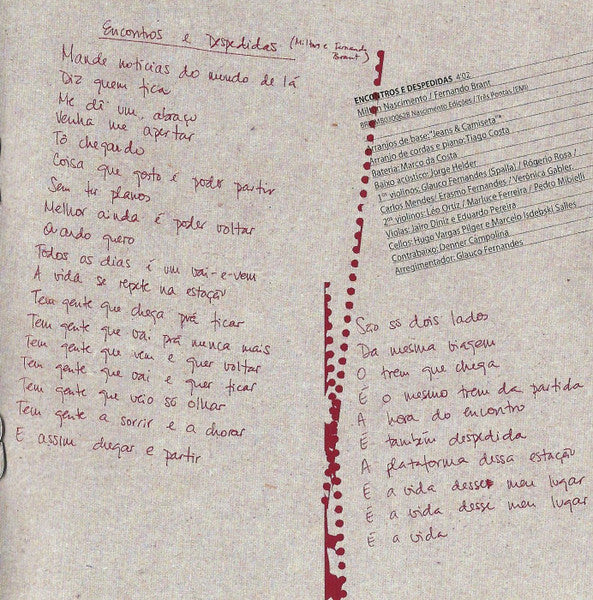 Encontros e Despedidas (Milton e Fernando Brant)
Mande notícias do mundo de lá
Diz quem fica
Me dê um abraço
Venha me apertar
Tô chegando
Coisa que gosto é poder partir
Sem ter planos
Melhor ainda é poder voltar
Quando quero
Todos os dias é um vai-e-vem
A vida se repete na estação
Tem gente que chega prá ficar
Tem gente que vai prá nunca mais
Tem gente que vem e quer voltar
Tem gente que vai e quer ficar
Tem gente que veio só olhar
Tem gente a sorrir e a chorar
E assim chegar e partir
ENCONTROS E DESPEDIDAS 4:02
Milton Nascimento / Fernando Brant
Nascimento Edições / Três Pontas (EMI)
Arranjos de base: "Jeans & Camiseta"*
Arranjo de cordas e piano: Tiago Costa
Bateria: Marco da Costa
Baixo acústico: Jorge Helder
1ºs violinos: Glauco Fernandes (Spalla) / Rogério Rosa /
Carlos Mendes / Erasmo Fernandes / Verônica Gabler
2ºs violinos: Léo Ortiz / Marluce Ferreira / Pedro Mibielli
Violas: Jairo Diniz e Eduardo Pereira
Cellos: Hugo Vargas Pilger e Marcelo Isdebski Salles
Contrabaixo: Denner Campolina
Arregimentador: Glauco Fernandes
São só dois lados
Da mesma viagem
O trem que chega
É o mesmo trem da partida
A hora do encontro
É também despedida
A plataforma dessa estação
É a vida desse meu lugar
É a vida desse meu lugar
É a vida